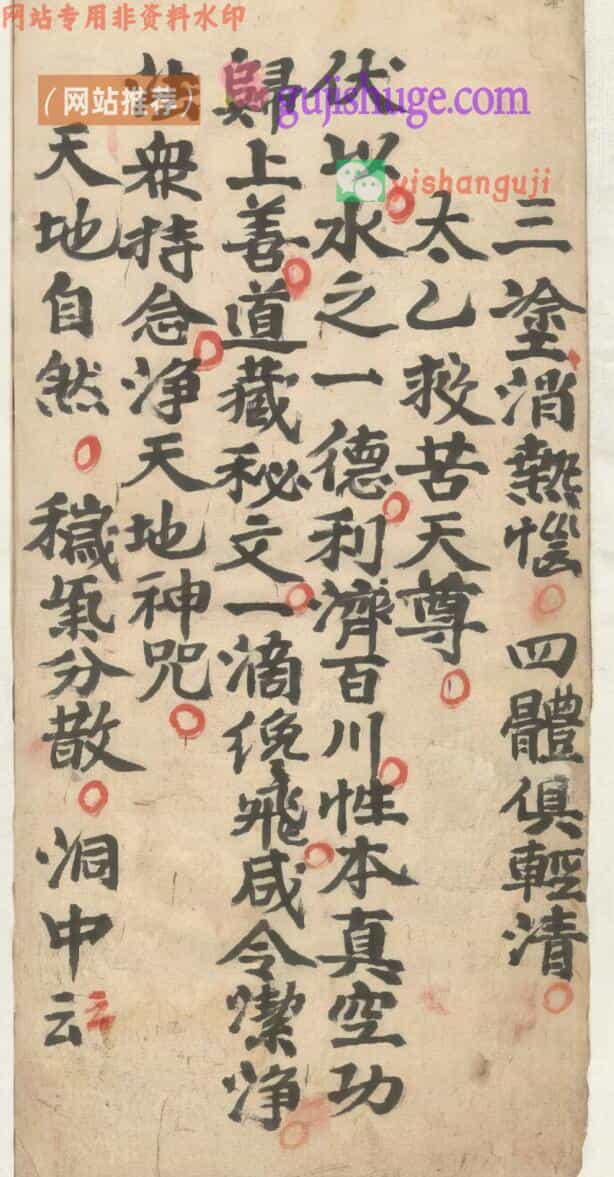 网站专用非资料水印
（网站推荐）
gujishuge.com
yishanguji
三塗消熱惱 四體俱輕清
太乙救苦天尊
伏以水之一德利濟百川性本真空功
歸上善道藏秘文一滴飛咸令潔净
衆持念净天地神咒
天地自然 穢氣分散 洞中云云